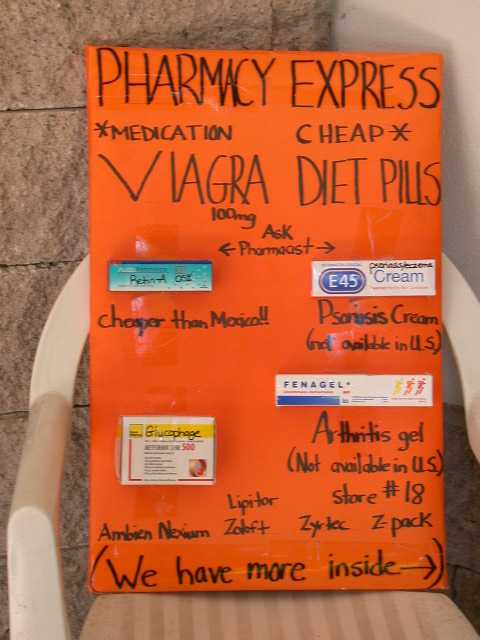 PHARMACY EXPRESS
*MEDICATION CHEAP*
VIAGRA DIET PILLS
100mg
Ask
Pharmacst
Retin-A 05%
psoriasis/eczema
E45 Cream
cheaper than Mexico!!
Psoriasis Cream
(not available in U.S.)
FENAGEL
Glucophage
500
Arthritis gel
(Not available in U.S.)
store #18
Lipitor
Ambien Nexium Zoloft Zyrtec Z-pack
(We have more inside→)